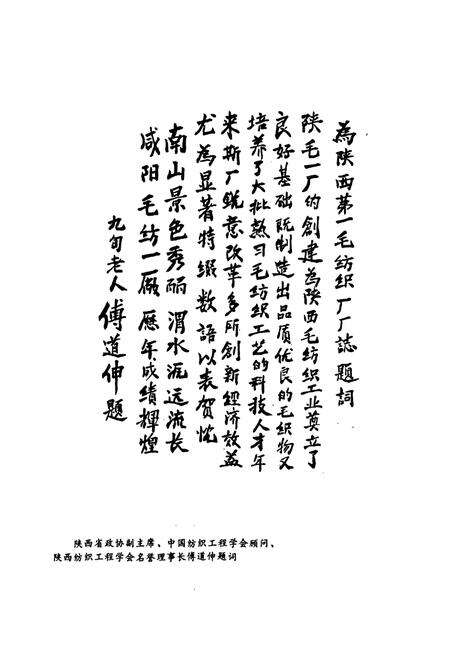 為陝西第一毛纺织厂厂誌题詞
陕毛一厂的創建為陝西毛纺织工业奠立了
良好基础既制造出品质优良的毛织物又
培养了大批熟习毛纺织工艺的科技人才年
来斯厂锐意改革多所創新經济效益
尤為显著特缀数語以表贺忱
南山景色秀丽 渭水泥远流长
咸阳毛纺一厰 歷年成績輝煌
九旬老人 傅道伸題
陕西省政协副主席、中国纺织工程学会顾问、
陕西纺织工程学会名誉理事长傅道伸题词